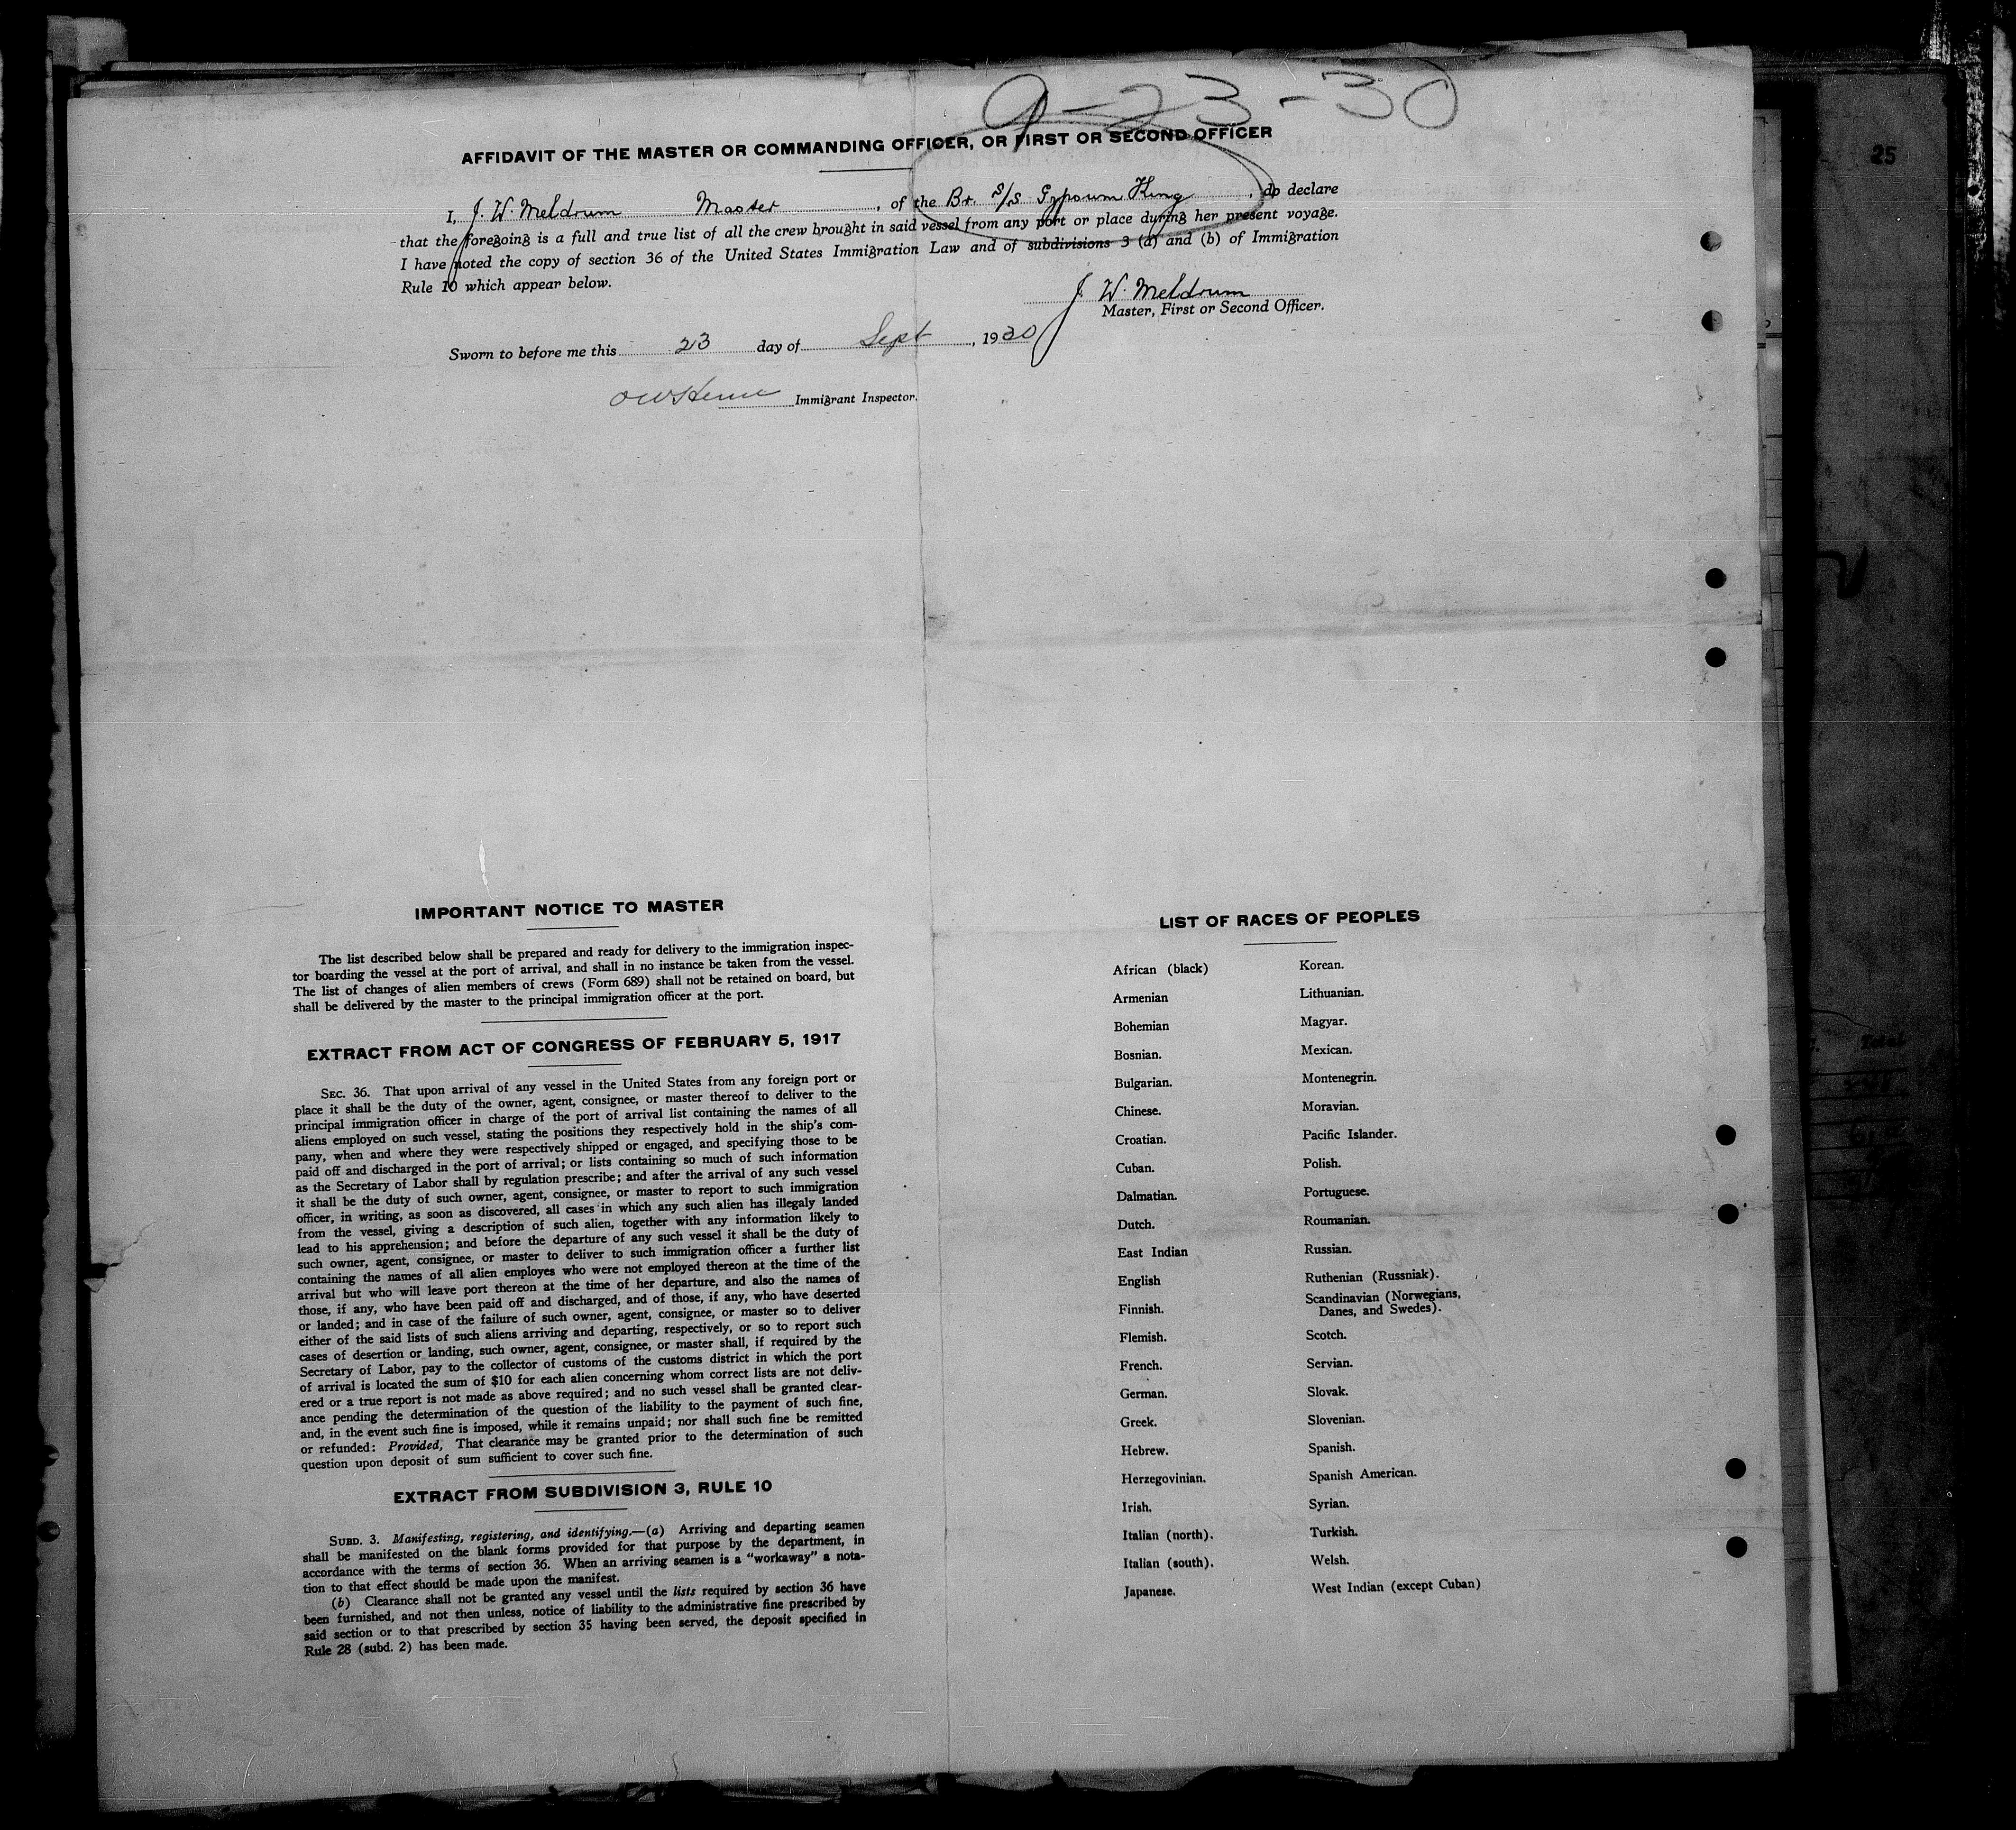 9-23-30
AFFIDAVIT OF THE MASTER OR COMMANDING OFFICER, OR FIRST OR SECOND OFFICER
I, J. W. Meldrum Master, of the Br. S/S Gypsum King, do declare
that the foregoing is a full and true list of all the crew brought in said vessel from any port or place during her present voyage.
I have noted the copy of section 36 of the United States Immigration Law and of subdivisions 3 (a) and (b) of Immigration
Rule 10 which appear below.
J. W. Meldrum
Master, First or Second Officer.
Sworn to before me this 23 day of Sept, 1930
Immigrant Inspector.
25
IMPORTANT NOTICE TO MASTER
The list described below shall be prepared and ready for delivery to the immigration inspec-
tor boarding the vessel at the port of arrival, and shall in no instance be taken from the vessel.
The list of changes of alien members of crews (Form 689) shall not be retained on board, but
shall be delivered by the master to the principal immigration officer at the port.
EXTRACT FROM ACT OF CONGRESS OF FEBRUARY 5, 1917
SEC. 36. That upon arrival of any vessel in the United States from any foreign port or
place it shall be the duty of the owner, agent, consignee, or master thereof to deliver to the
principal immigration officer in charge of the port of arrival list containing the names of all
aliens employed on such vessel, stating the positions they respectively hold in the ship's com-
pany, when and where they were respectively shipped or engaged, and specifying those to be
paid off and discharged in the port of arrival; or lists containing so much of such information
as the Secretary of Labor shall by regulation prescribe; and after the arrival of any such vessel
it shall be the duty of such owner, agent, consignee, or master to report to such immigration
officer, in writing, as soon as discovered, all cases in which any such alien has illegaly landed
from the vessel, giving a description of such alien, together with any information likely to
lead to his apprehension; and before the departure of any such vessel it shall be the duty of
such owner, agent, consignee, or master to deliver to such immigration officer a further list
containing the names of all alien employes who were not employed thereon at the time of the
arrival but who will leave port thereon at the time of her departure, and also the names of
those, if any, who have been paid off and discharged, and of those, if any, who have deserted
or landed; and in case of the failure of such owner, agent, consignee, or master so to deliver
either of the said lists of such aliens arriving and departing, respectively, or so to report such
cases of desertion or landing, such owner, agent, consignee, or master shall, if required by the
Secretary of Labor, pay to the collector of customs of the customs district in which the port
of arrival is located the sum of $10 for each alien concerning whom correct lists are not deliv-
ered or a true report is not made as above required; and no such vessel shall be granted clear-
ance pending the determination of the question of the liability to the payment of such fine,
and, in the event such fine is imposed, while it remains unpaid; nor shall such fine be remitted
or refunded: Provided, That clearance may be granted prior to the determination of such
question upon deposit of sum sufficient to cover such fine.
EXTRACT FROM SUBDIVISION 3, RULE 10
SUBD. 3. Manifesting, registering, and identifying.—(a) Arriving and departing seamen
shall be manifested on the blank forms provided for that purpose by the department, in
accordance with the terms of section 36. When an arriving seamen is a "workaway" a nota-
tion to that effect should be made upon the manifest.
(b) Clearance shall not be granted any vessel until the lists required by section 36 have
been furnished, and not then unless, notice of liability to the administrative fine prescribed by
said section or to that prescribed by section 35 having been served, the deposit specified in
Rule 28 (subd. 2) has been made.
LIST OF RACES OF PEOPLES
African (black) Korean.
Armenian Lithuanian.
Bohemian Magyar.
Bosnian. Mexican.
Bulgarian. Montenegrin.
Chinese. Moravian.
Croatian. Pacific Islander.
Cuban. Polish.
Dalmatian. Portuguese.
Dutch. Roumanian.
East Indian Russian.
English Ruthenian (Russniak).
Finnish. Scandinavian (Norwegians,
Danes, and Swedes).
Flemish. Scotch.
French. Servian.
German. Slovak.
Greek. Slovenian.
Hebrew. Spanish.
Herzegovinian. Spanish American.
Irish. Syrian.
Italian (north). Turkish.
Italian (south). Welsh.
Japanese. West Indian (except Cuban)